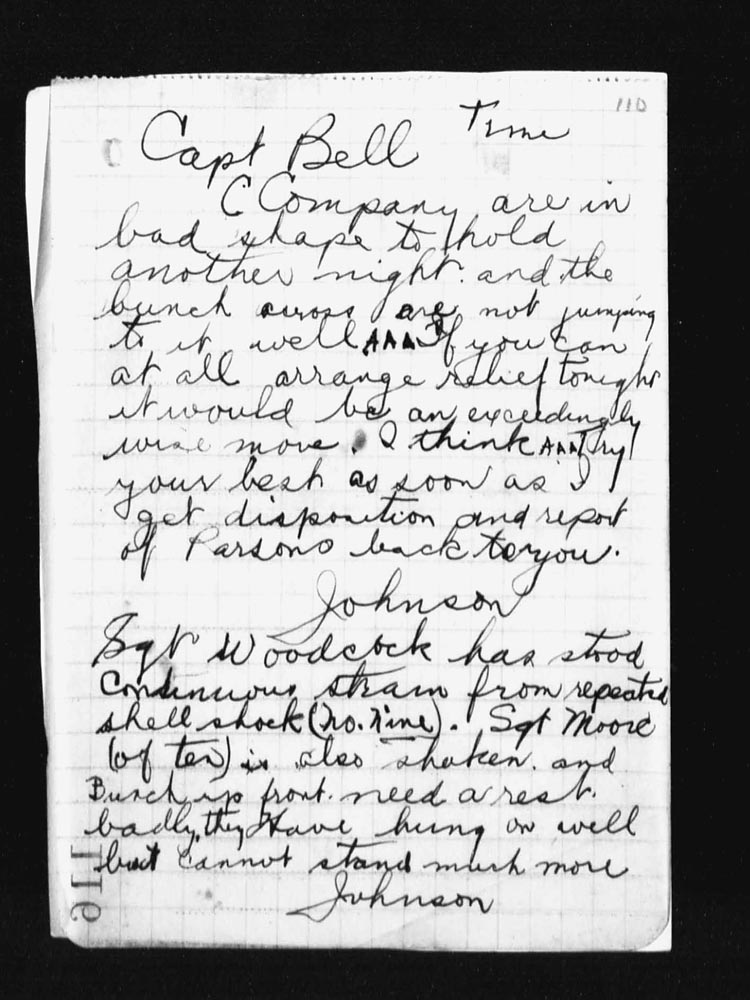 110
Time
Capt Bell
C Company are in
bad shape to hold
another night. and the
bunch across are not jumping
to it well AAA If you can
at all arrange relief tonight
it would be an exceedingly
wise move. I think AAA Try
your best as soon as I
get disposition and report
of Parsons back to you.
Johnson
Sgt Woodcock has stood
Continuous strain from repeated
shell shock (No. Nine). Sgt Moore
(of ten) is also shaken. and
Bunch up front. need a rest.
badly, they Have hung on well
but cannot stand much more
Johnson
116